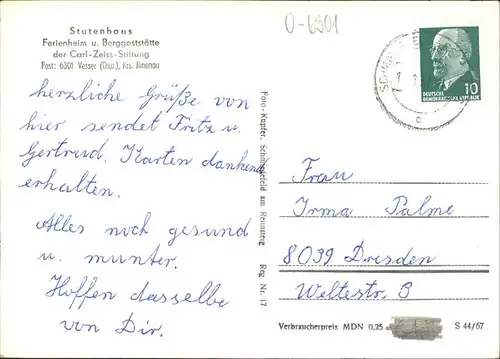 Stutenhaus
Ferienheim u. Berggaststätte
der Carl-Zeiss-Stiftung
Post: 6301 Vesser (Thür.), Krs. Ilmenau
O-6301
herzliche Grüße von
hier sendet Fritz u.
Gertrud. Karten dankend
erhalten.
Alles noch gesund
u. munter.
Hoffen dasselbe
von Dir.
Foto-Kupfer, Schmiedefeld am Rennsteig Reg Nr. 17
10
DEUTSCHE
DEMOKRATISCHE REPUBLIK
c
Frau
Irma Palme
8039 Dresden
Weltestr. 9
Verbraucherpreis MDN 0,25 S 44/67